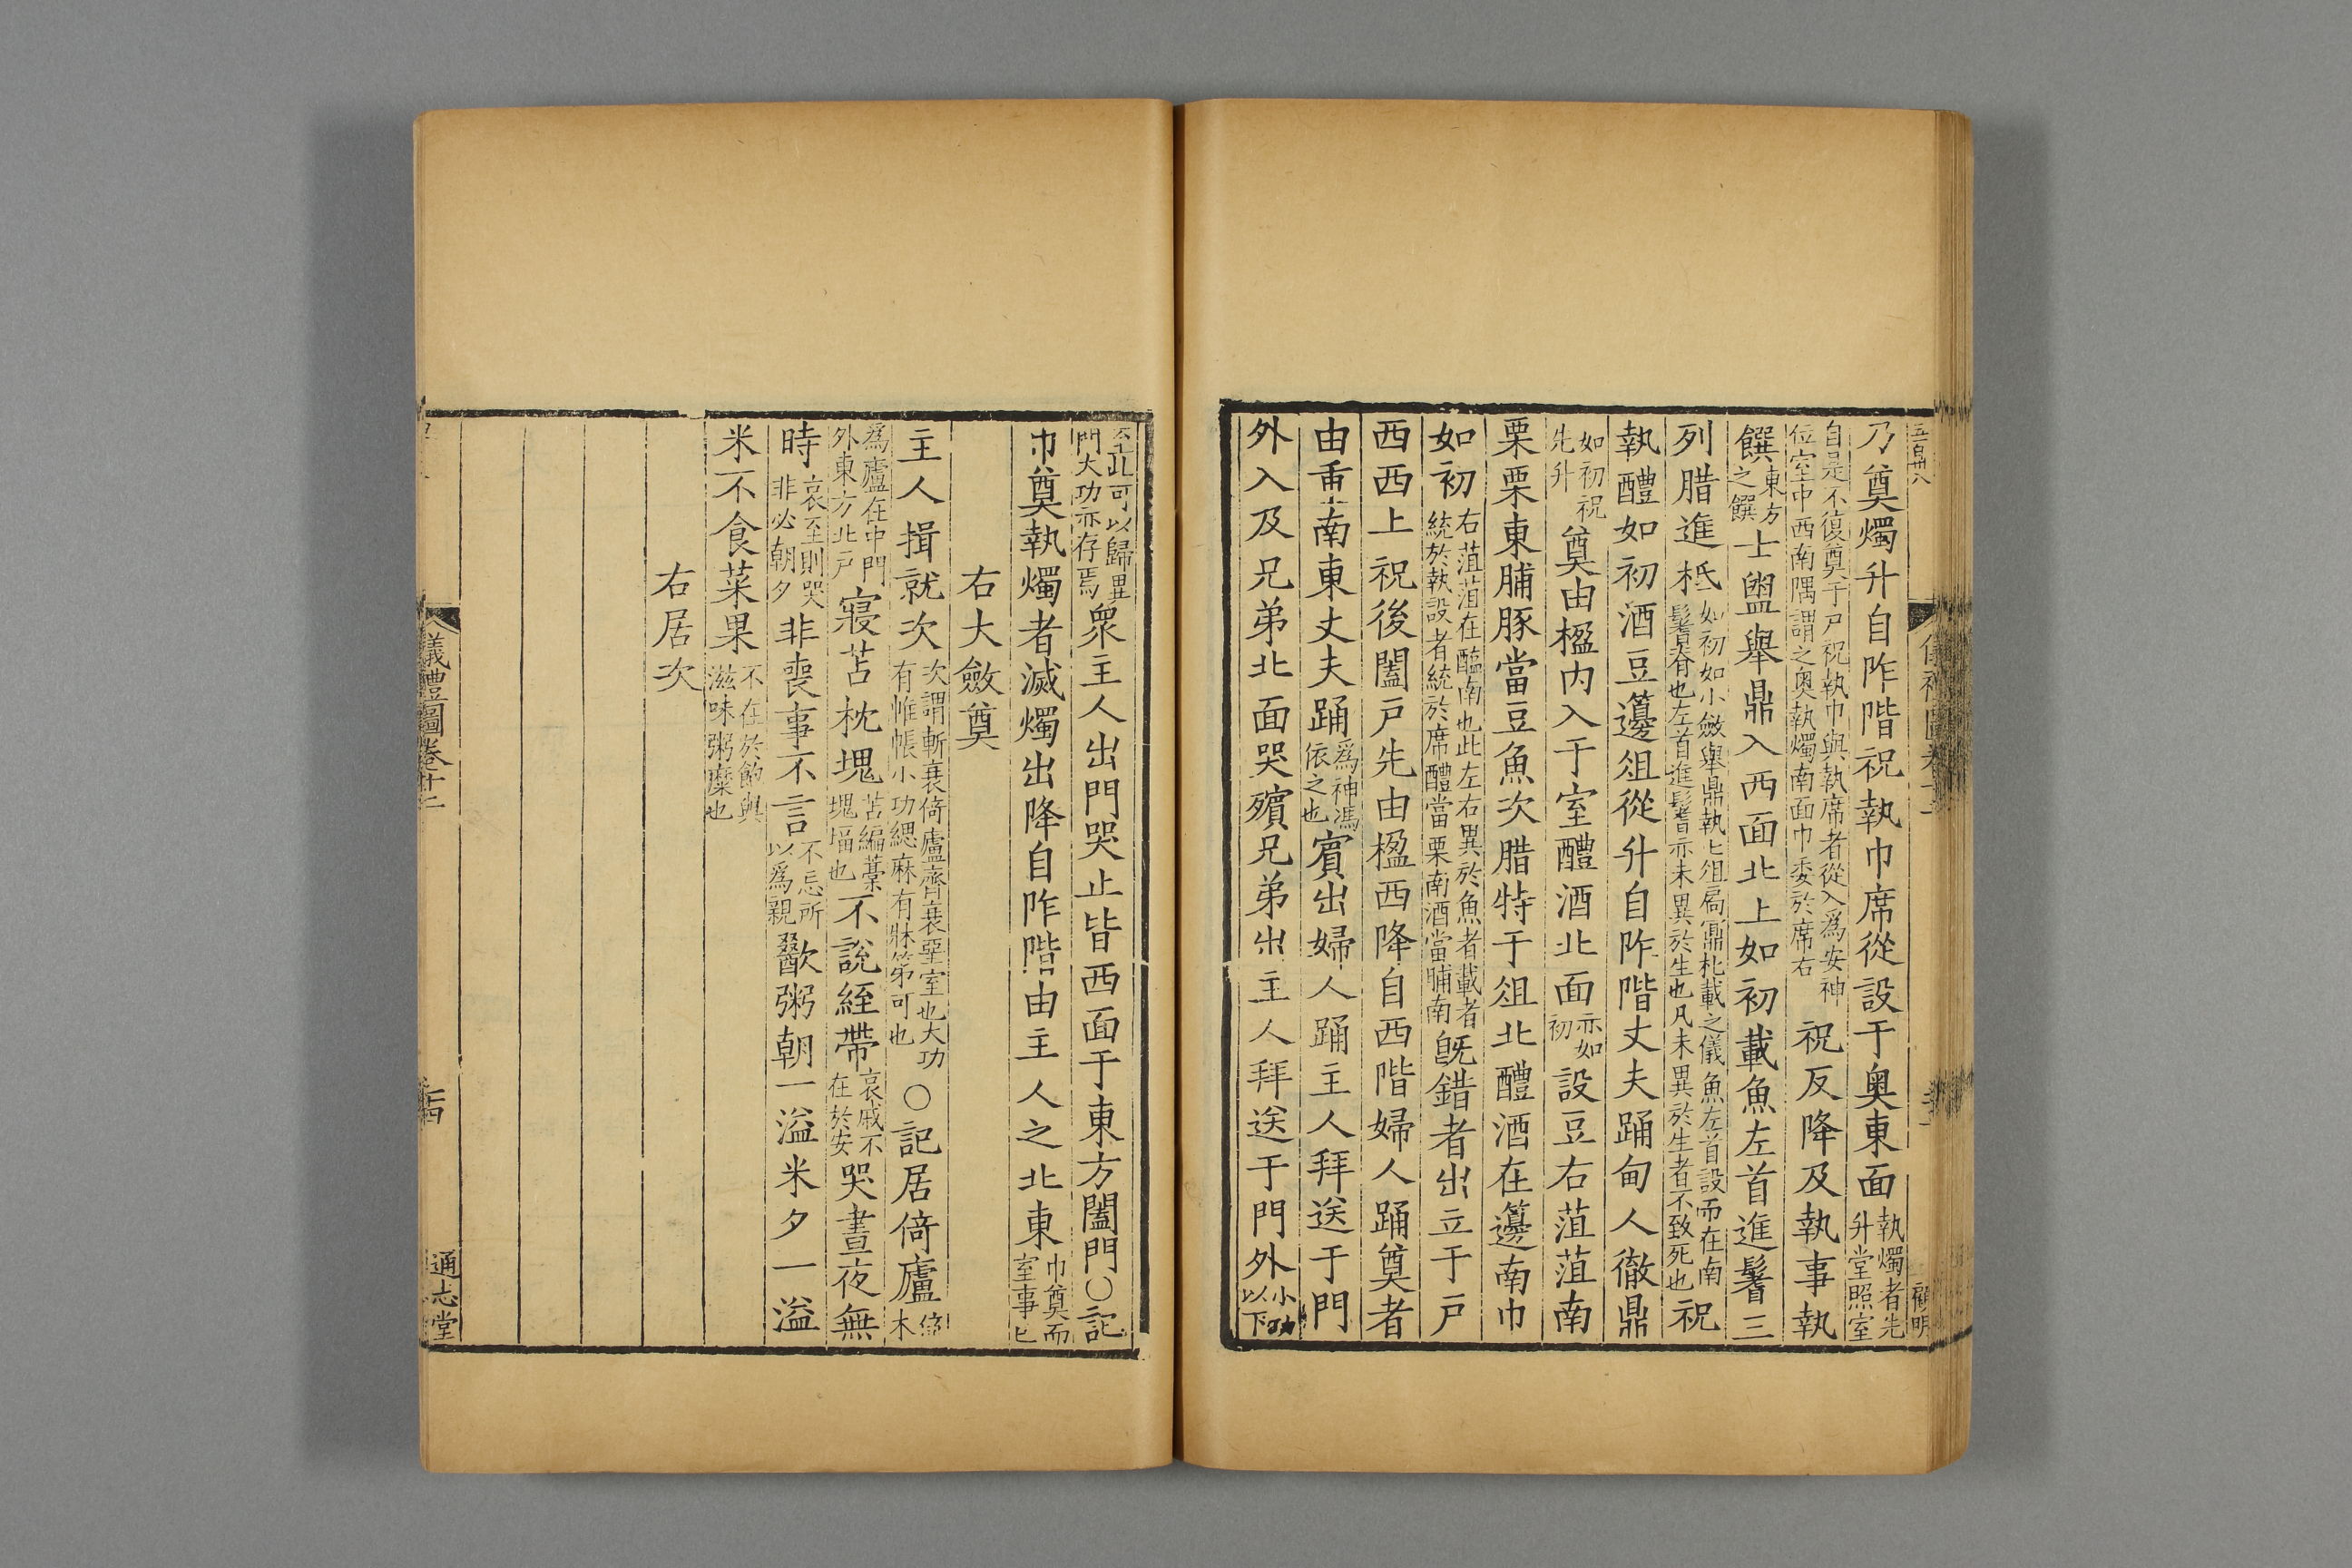 乃奠燭升自阼階祝執巾席從設于奧東面執燭者先升堂照室
自是不復奠于尸祝執巾與執席者從入爲安神位室中西南隅謂之奧執燭南面巾委於席右祝反降及執事執
饌東方之饌士盥舉鼎入西面北上如初載魚左首進鬐三
列腊進柢如初如小斂舉鼎執匕俎扃鼏朼載之儀魚左首設而在南鬐脊也左首進鬐亦未異於生也凡未異於生者不致死也祝
執醴如初酒豆籩俎從升自阼階丈夫踊甸人徹鼎
如初祝先升奠由楹内入于室醴酒北面亦如初設豆右菹菹南
栗栗東脯豚當豆魚次腊特于俎北醴酒在籩南巾
如初右菹菹在醢南也此左右異於魚者載者統於執設者統於席醴當栗南酒當脯南旣錯者出立于戶
西西上祝後闔戶先由楹西降自西階婦人踊奠者
由重南東丈夫踊爲神馮依之也賓出婦人踊主人拜送于門
外入及兄弟北面哭殯兄弟出主人拜送于門外小以下
至此可以歸異門大功亦存焉衆主人出門哭止皆西面于東方闔門○記
巾奠執燭者滅燭出降自阼階由主人之北東巾奠而室事已
右大斂奠
主人揖就次次謂斬衰倚廬齊衰堊室也大功有帷帳小功緦麻有牀笫可也○記居倚廬倚木
爲廬在中門外東方北戶寢苫枕塊苫編藁塊堛也不說絰帶哀戚不在於安哭晝夜無
時哀至則哭非必朝夕非喪事不言不忘所以爲親歠粥朝一溢米夕一溢
米不食菜果不在於飽與滋味粥糜也
右居次
儀禮圖卷十二
通志堂